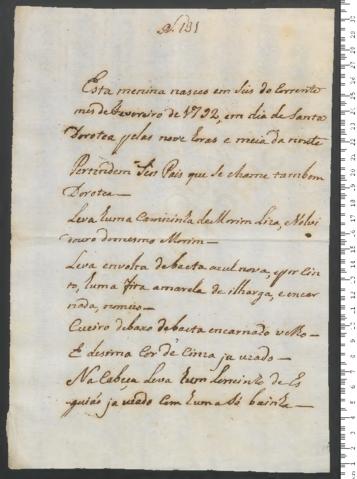 N. 191
Esta menina nasceo em seis do Corrente
mes de fevereiro de 1792, em dia de Santa
Dorotea pelas nove oras e meia da noute
Pertendem Seos Pais que se chame tambem
Dorotea —
Leva huma Camizinha de Morim Liza, e
douro do mesmo Morim —
Leva envolta de baeta azul nova, e por Cin
to, huma fita amarela de ilharga, e encar
nada, no meio —
Cueiro debaxo de baeta encarnado velho —
E desima Cor de Cinza ja uzado —
Na Cabeça Leva hum Lencinho de Es
guião ja uzado Com huma só bainha —